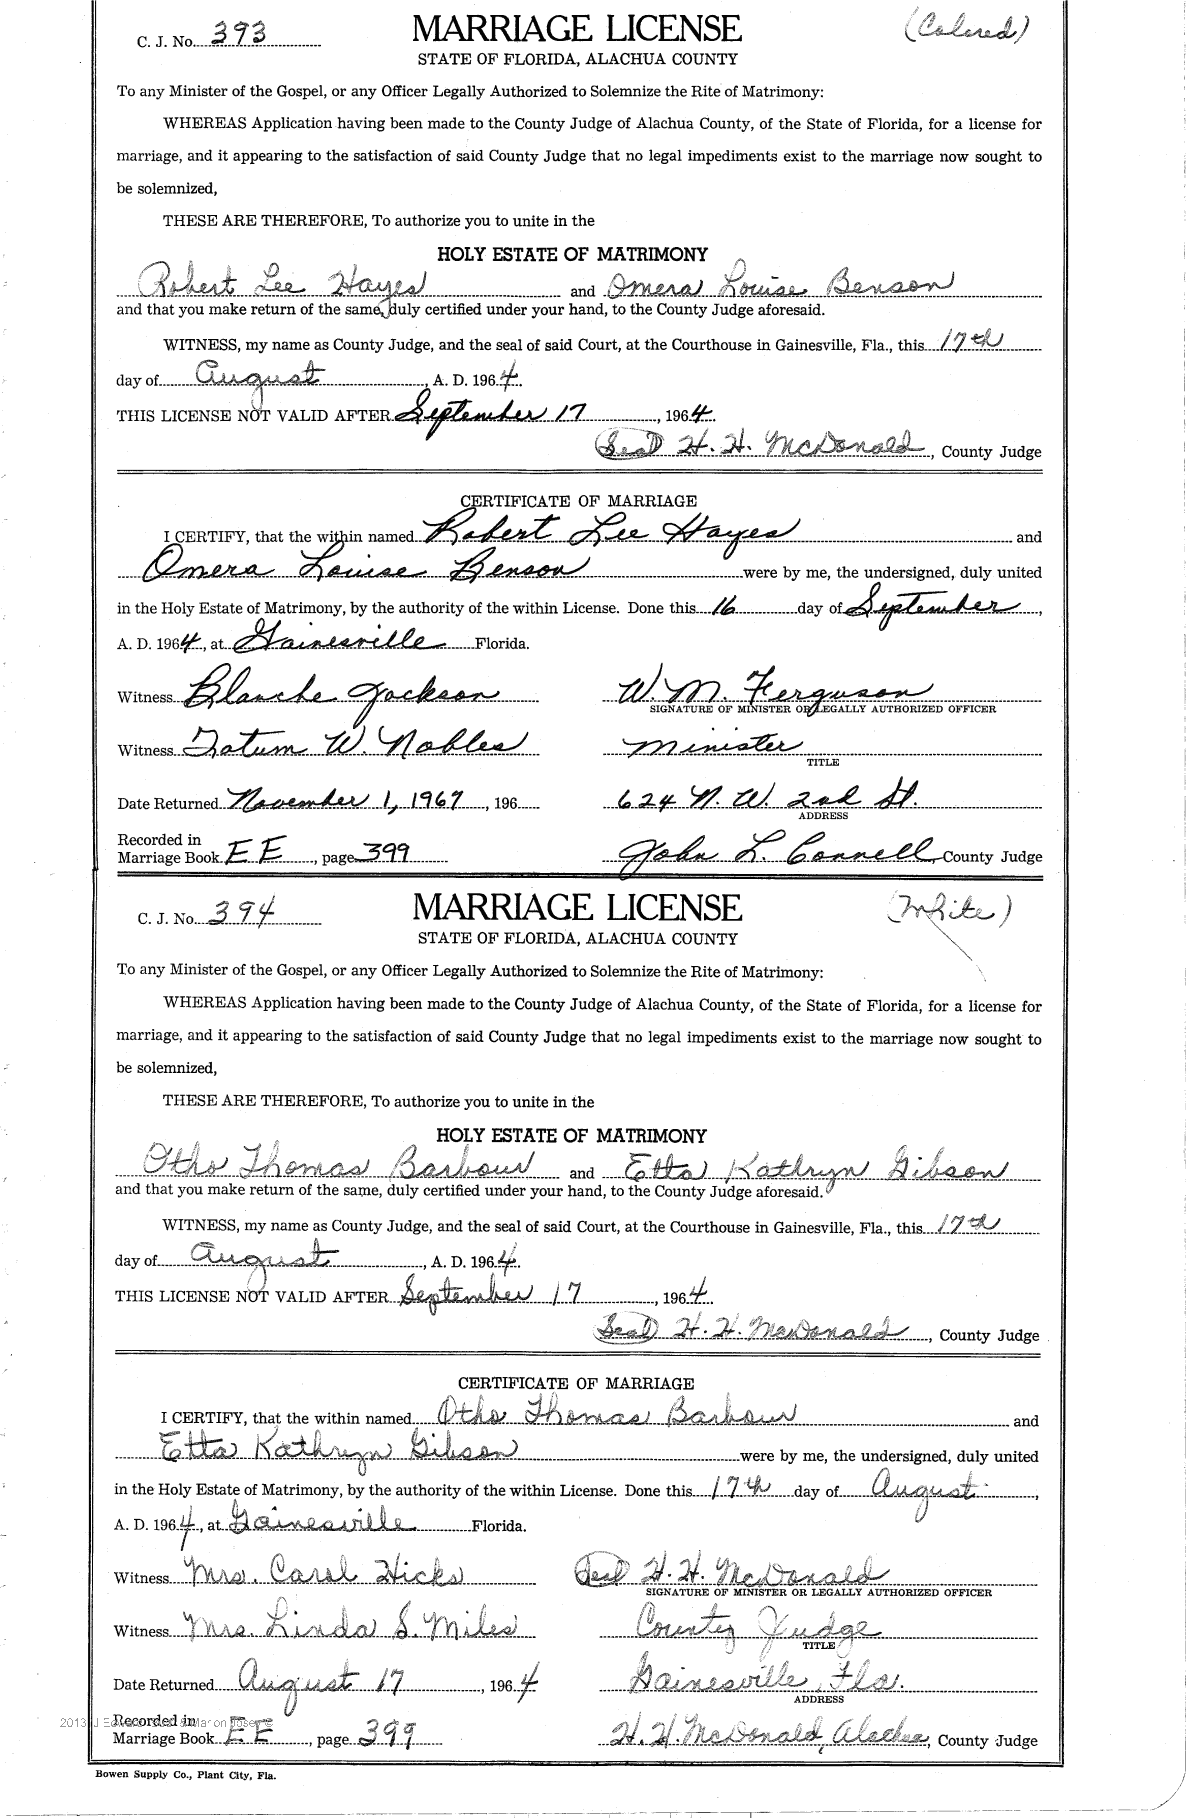 C. J. No. 393 MARRIAGE LICENSE (Colored)
STATE OF FLORIDA, ALACHUA COUNTY
To any Minister of the Gospel, or any Officer Legally Authorized to Solemnize the Rite of Matrimony:
WHEREAS Application having been made to the County Judge of Alachua County, of the State of Florida, for a license for
marriage, and it appearing to the satisfaction of said County Judge that no legal impediments exist to the marriage now sought to
be solemnized,
THESE ARE THEREFORE, To authorize you to unite in the
HOLY ESTATE OF MATRIMONY
Robert Lee Hayes and Omera Louise Benson
and that you make return of the same, duly certified under your hand, to the County Judge aforesaid.
WITNESS, my name as County Judge, and the seal of said Court, at the Courthouse in Gainesville, Fla., this 17th
day of August, A. D. 1964.
THIS LICENSE NOT VALID AFTER September 17, 1964.
(Seal) H. H. McDonald, County Judge
CERTIFICATE OF MARRIAGE
I CERTIFY, that the within named Robert Lee Hayes and
Omera Louise Benson were by me, the undersigned, duly united
in the Holy Estate of Matrimony, by the authority of the within License. Done this 16 day of September,
A. D. 1964, at Gainesville Florida.
Witness Blanche Jackson W. M. Ferguson
SIGNATURE OF MINISTER OR LEGALLY AUTHORIZED OFFICER
Witness Tatum W. Nobles Minister
TITLE
Date Returned November 1, 1967, 196 624 N. W. 2nd St.
ADDRESS
Recorded in
Marriage Book EE, page 399 John L. Connell County Judge
C. J. No. 394 MARRIAGE LICENSE (White)
STATE OF FLORIDA, ALACHUA COUNTY
To any Minister of the Gospel, or any Officer Legally Authorized to Solemnize the Rite of Matrimony:
WHEREAS Application having been made to the County Judge of Alachua County, of the State of Florida, for a license for
marriage, and it appearing to the satisfaction of said County Judge that no legal impediments exist to the marriage now sought to
be solemnized,
THESE ARE THEREFORE, To authorize you to unite in the
HOLY ESTATE OF MATRIMONY
Otho Thomas Barbour and Etta Kathryn Gibson
and that you make return of the same, duly certified under your hand, to the County Judge aforesaid.
WITNESS, my name as County Judge, and the seal of said Court, at the Courthouse in Gainesville, Fla., this 17th
day of August, A. D. 1964.
THIS LICENSE NOT VALID AFTER September 17, 1964.
(Seal) H. H. McDonald, County Judge
CERTIFICATE OF MARRIAGE
I CERTIFY, that the within named Otho Thomas Barbour and
Etta Kathryn Gibson were by me, the undersigned, duly united
in the Holy Estate of Matrimony, by the authority of the within License. Done this 17th day of August,
A. D. 1964, at Gainesville Florida.
Witness Mrs. Carol Hicks (Seal) H. H. McDonald
SIGNATURE OF MINISTER OR LEGALLY AUTHORIZED OFFICER
Witness Mrs. Linda S. Miles County Judge
TITLE
Date Returned August 17, 1964 Gainesville, Fla.
ADDRESS
2013 J
Recorded in
Marriage Book EE, page 399 H. H. McDonald, Alachua, County Judge
Bowen Supply Co., Plant City, Fla.